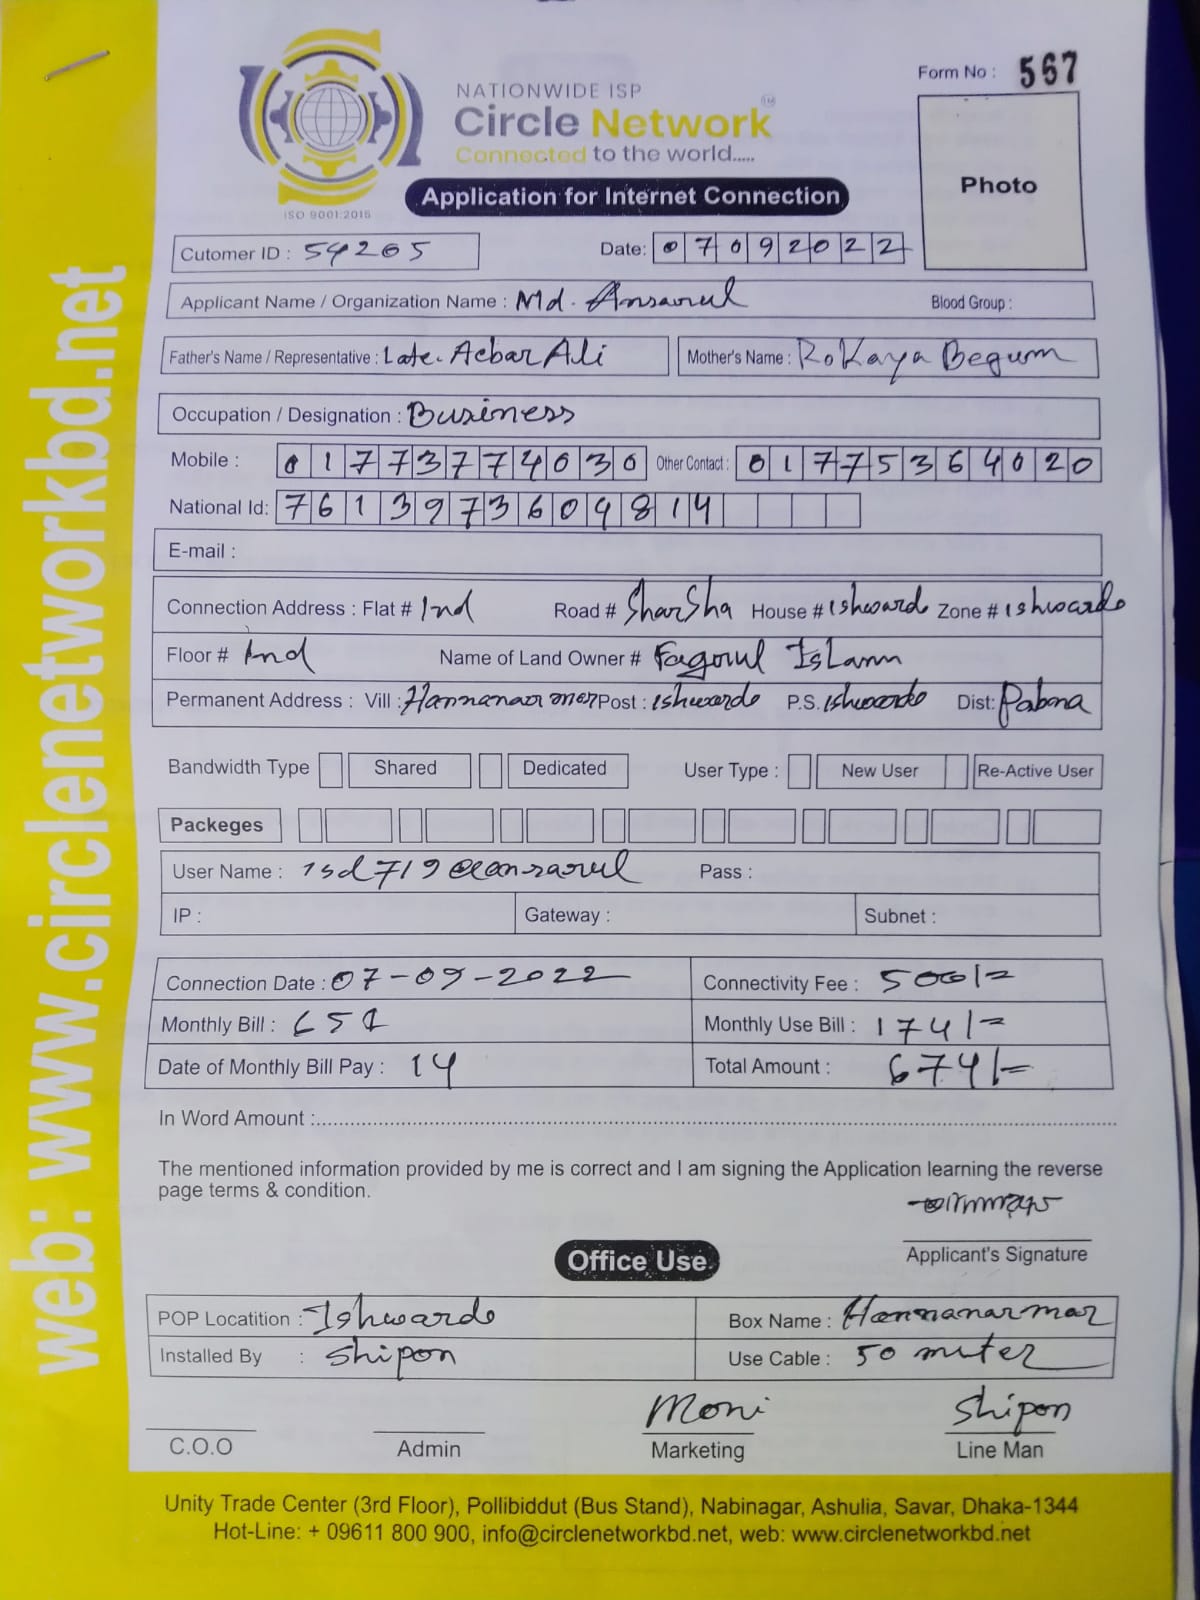 Form No : 567
NATIONWIDE ISP
Circle Network TM
Connected to the world.....
Photo
Application for Internet Connection
ISO 9001:2015
Cutomer ID : 54265 Date: 07092022
Applicant Name / Organization Name : Md. Ansarul Blood Group :
Father's Name / Representative : Late. Acbar Ali Mother's Name : Rokaya Begum
Occupation / Designation : Business
Mobile : 01773774030 Other Contact : 01775364020
National Id: 7613973609814
E-mail :
Connection Address : Flat # Ind Road # SharSha House # ishward Zone # ishwardo
Floor # Ind Name of Land Owner # Fagorul IsLam
Permanent Address : Vill : Hannanaor mor Post : ishwardo P.S. ishwardo Dist: Pabna
Bandwidth Type Shared Dedicated User Type : New User Re-Active User
Packeges
User Name : isd719@ansarul Pass :
IP : Gateway : Subnet :
Connection Date : 07-09-2022 Connectivity Fee : 500/=
Monthly Bill : Monthly Use Bill : 174/=
Date of Monthly Bill Pay : 14 Total Amount : 674/=
In Word Amount :
The mentioned information provided by me is correct and I am signing the Application learning the reverse
page terms & condition.
Applicant's Signature
Office Use
POP Locatition : Ishwardo Box Name : Hannanarmar
Installed By : Shipon Use Cable : 50 miter
Moni Shipon
C.O.O Admin Marketing Line Man
Unity Trade Center (3rd Floor), Pollibiddut (Bus Stand), Nabinagar, Ashulia, Savar, Dhaka-1344
Hot-Line: + 09611 800 900, info@circlenetworkbd.net, web: www.circlenetworkbd.net
web: www.circlenetworkbd.net